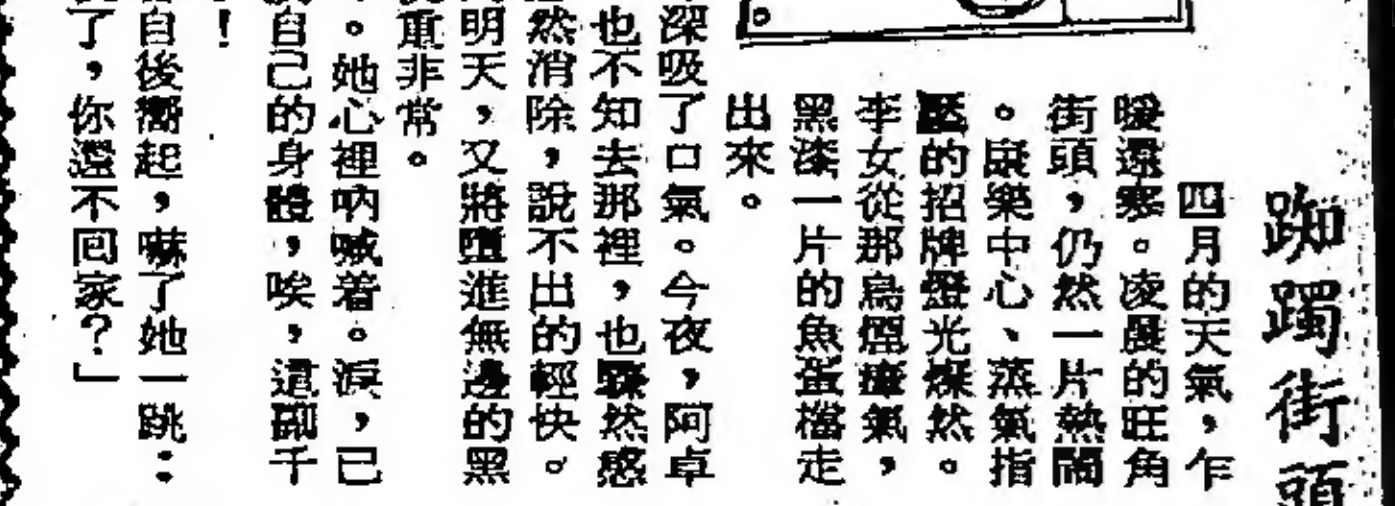 踟躅街頭
四月的天氣，乍
暖還寒。凌晨的旺角
街頭，仍然一片熱鬧
。康樂中心、蒸氣指
壓的招牌燈光燦然。
李女從那烏煙瘴氣，
黑漆一片的魚蛋檔走
出來。
深吸了口氣。今夜，阿卓
也不知去那裡，也驟然感
然消除，說不出的輕快。
明天，又將墮進無邊的黑
重非常。
。她心裡吶喊着。淚，已
自己的身體，唉，這副千
！
自後嚮起，嚇了她一跳：
了，你還不回家？」